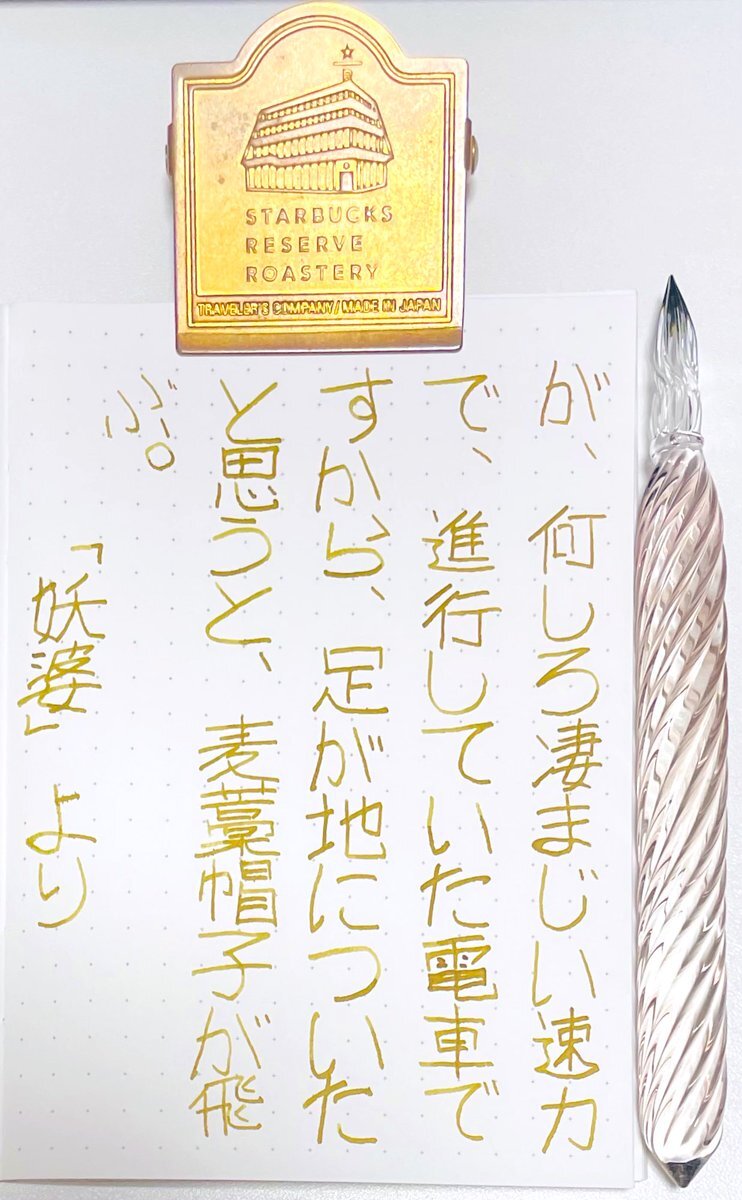 STARBUCKS
RESERVE
ROASTERY
TRAVELER'S COMPANY / MADE IN JAPAN
が、何しろ凄まじい速力
で、進行していた電車で
すから、足が地についた
と思うと、麦藁帽子が飛
ぶ。
「妖婆」より